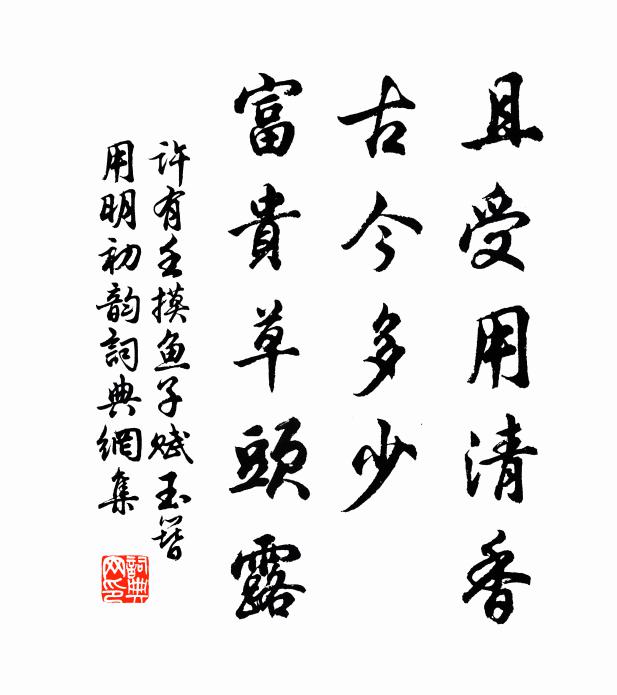 且受用清香
古今多少
富貴草頭露
許有壬摸魚子賦玉簪
用明初韵詞典網集
詞典網印